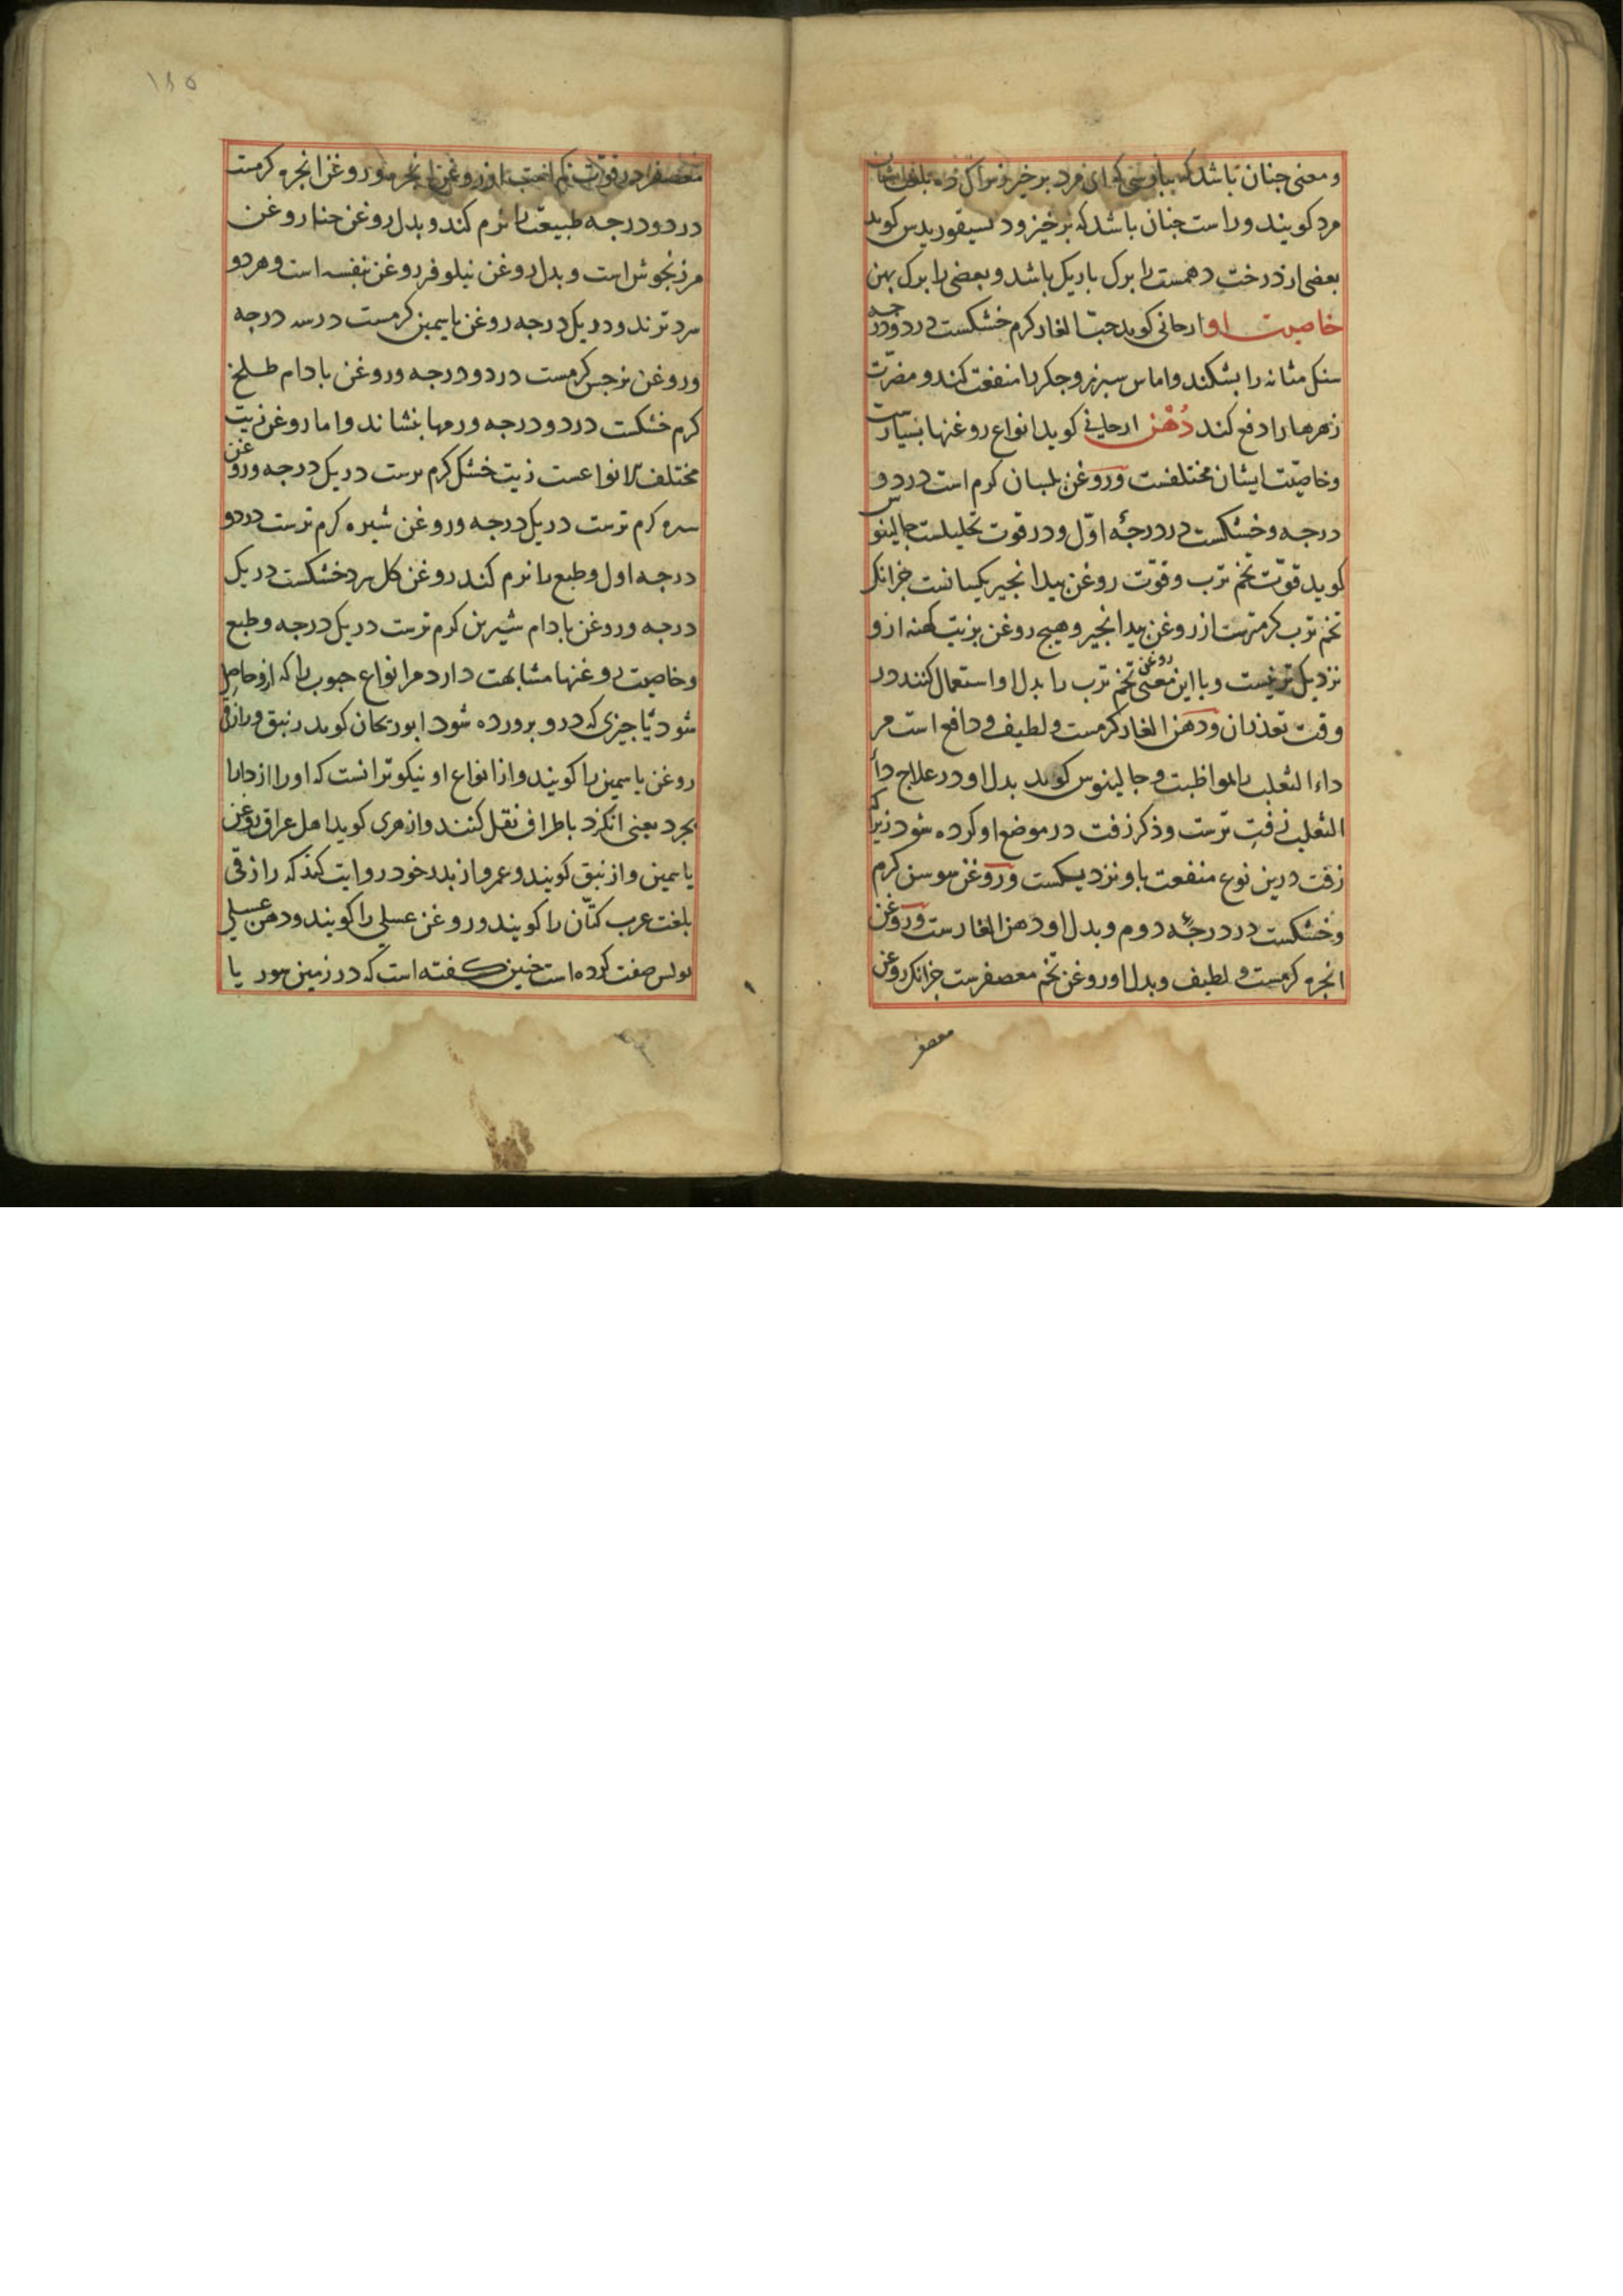 و معنی چنان باشد که بپارسی که ای مرد برخیز
مرد کویند و راست چنان باشد که برخیز و دیسیقوریدس کوید
بعضی از درخت دهمست را برک باریک باشد و بعضی را برک پهن
خاصیت او ارجانی کوید حبّ الغار کرم خشکست در دو درجه
سنک مثانه را بشکند و اماس سپرز و جکر را منفعت کند و مضرّت
زهرها را دفع کند دُهْن ارجانی کوید انواع روغنها بسیارست
و خاصیّت ایشان مختلفست و روغن بلسان کرم است در دو
درجه و خشکست در درجهٔ اوّل و در قوت تحلیلست جالینوس
کوید قوّت تخم ترب و قوّت روغن بیدانجیر یکسانست جزانک
تخم ترب کرمترست از روغن بیدانجیر و هیچ روغن بزیت کهنه ازو
نزدیک تر نیست و با این معنی روغن تخم ترب را بدل او استعمال کنند در
وقت تعذر ان و دهن الغار کرمست و لطیف و دافع است مر
داء الثعلب را بمواظبت و جالینوس کوید بدل او در علاج داء
الثعلب زفتِ ترست و ذکر زفت در موضع او کرده شود زیراکه
زفت درین نوع منفعت باو نزدیکست و روغن سوسن کرم
و خشکست در درجهٔ دوم و بدل او دهن الغارست و روغن
انجره کرمست و لطیف و بدل او روغن تخم معصفرست جزانک روغن
معصفر
١٨٥
معصفر در قوّت کم است از روغن انجره و روغن انجره کرمست
در دو درجه طبیعت را نرم کند و بدل روغن حنا روغن
مرزنجوش است و بدل روغن نیلوفر روغن بنفسه است و هر دو
سرد ترند و در یک درجه روغن یاسمین کرمست در سه درجه
و روغن نرجس کرمست در دو درجه و روغن بادام طلخ
کرم خشکست در دو درجه ورمها بنشاند و اما روغن زیت
مختلف الانواعست زیت خشک کرم ترست در یک درجه و روغن
سره کرم ترست در یک درجه و روغن شیره کرم ترست در دو
درجه اول و طبع را نرم کند روغن کل سرد خشکست در یک
درجه و روغن بادام شیرین کرم ترست در یک درجه و طبع
و خاصیت روغنها مشابهت دارد مر انواع حبوب را که ازو حاصل
شود یا چیزی که درو پرورده شود ابوریحان کوید زنبق و رازقی
روغن یاسمین را کویند و از انواع او نیکوتر انست که او را از دابا
بجرد یعنی انکرد باطراف نقل کنند و ازهری کوید اهل عراق روغن
یاسمین و از نبق کویند و عمرو از پدر خود روایت کند که رازقی
بلغت عرب کتّان را کویند و روغن عسلی را کویند و دهن عسلی
بولس صفت کرده است چنین کفته است که در زمین سور یا